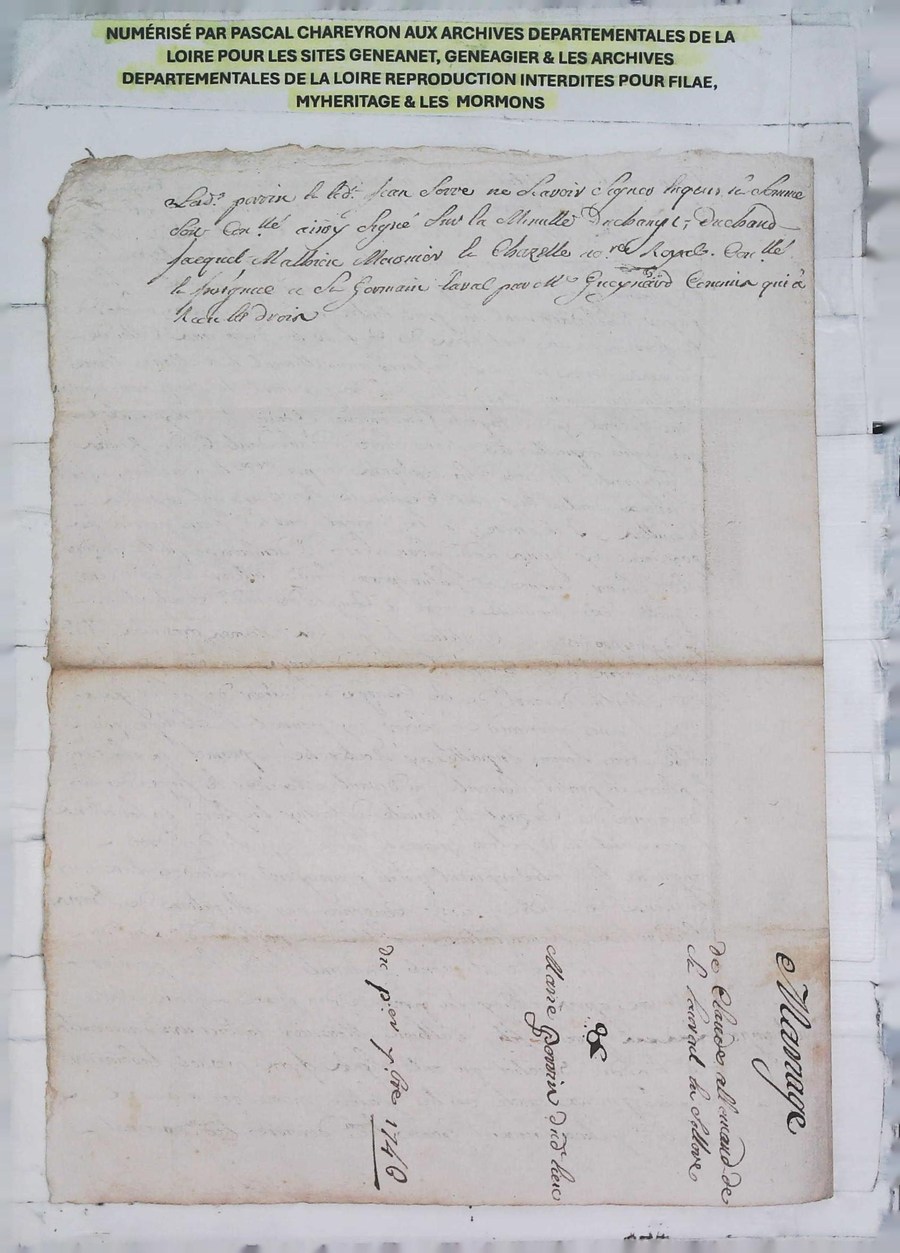 NUMÉRISÉ PAR PASCAL CHAREYRON AUX ARCHIVES DEPARTEMENTALES DE LA
LOIRE POUR LES SITES GENEANET, GENEAGIER & LES ARCHIVES
DEPARTEMENTALES DE LA LOIRE REPRODUCTION INTERDITES POUR FILAE,
MYHERITAGE & LES MORMONS
perrin le led. Jean Serre ne scavoir signer
ainsy signé sur la Minutte Duchampt, Duchaud
Jacquet Mathieu Meusnier le Chazelle no.re Royal. Con.llé
a St Germain Laval par Mr Gueynard Commis qui a
droits
Mariage
de Claude allemand de
&
Marie Perrin dud. lieu
du p.er 7.bre 1746